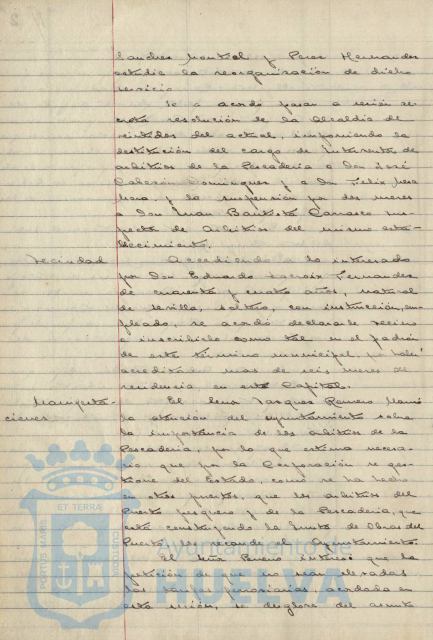 Sanchez Montiel y Perez Hernandez
estudie la reorganización de dicho
servicio
Se acordó pasar a sesión se-
creta resolución de la Alcaldía de
veintidos del actual, imponiendo la
destitución del cargo de
arbitrios de la Pescadería a Don José
Calderón Dominguez y a Don Felix
y la suspensión por dos meses
a Don Juan Bautista Carrasco Ins-
pector de Arbitrios del mismo esta-
blecimiento.
Vecindad
Accediendo a lo interesado
por Don Eduardo Lacroix Fernandez
de cuarenta y cuatro años, natural
de Sevilla, soltero, con instrucción, em-
pleado, se acordó declararle vecino
e inscribirle como tal en el padrón
de este término municipal, por haber
acreditado mas de seis meses de
residencia en esta Capital.
Manifesta-
ciones
El señor Vazquez Romero llamó
la atención del Ayuntamiento sobre
la importancia de los arbitrios de la
Pescadería, por lo que estima necesa-
rio que por la Corporación se ges-
tione del Estado, como se ha hecho
en otros puertos, que los arbitrios del
Puerto pesquero y de la Pescadería, que
está construyendo la Junta de Obras del
Puerto, los recaude el Ayuntamiento.
El señor interesó que la
petición de que no sean elevadas
las tarifas ferroviarias, acordada en
esta sesión, se desglose del asunto
ET TERRÆ
PORTUS MARIS
CUSTODIA
Ayuntamiento de
HUELVA